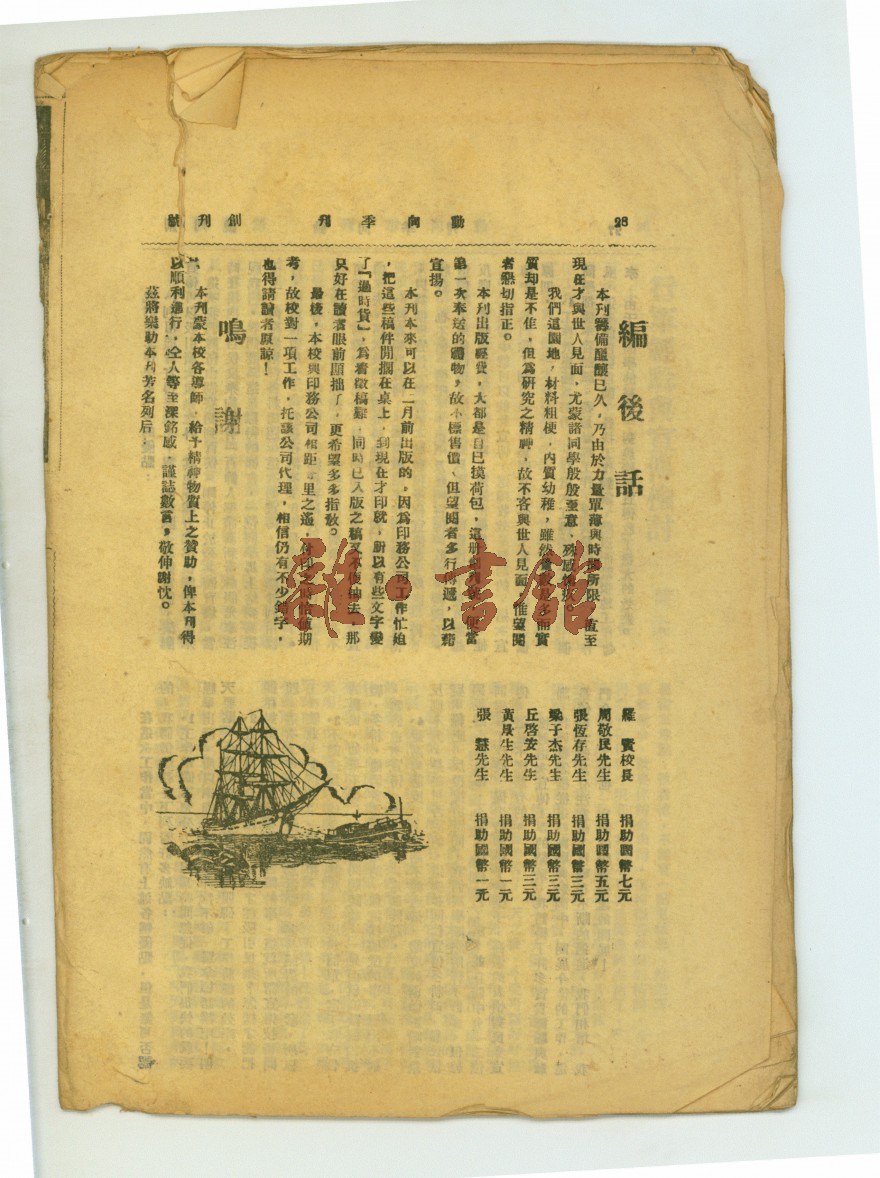 28
動向季刊
創刊號
編後話
本刊籌備醞釀已久,乃由於力量單薄與時間所限,直至
現在才與世人見面,尤蒙諸同學殷殷至意,
我們這園地,材料粗梗,內質幼稚,雖然
質却是不佳,但爲研究之精神,故不吝與世人見面,惟望閱
者懇切指正。
本刊出版經費,大都是自己摸荷包,這
第一次奉送的禮物,故不標售價、但望閱者多行傳遞,以藉
宣揚。
本刊本來可以在二月前出版的,因爲印務公司工作忙迫
,把這些稿件開擱在桌上,到現在才印就,所以有些文字變
了『過時貨』,爲着徵稿難,同時已入版之稿又不便抽去,那
只好在讀者眼前顯拙了,更希望多多指敎。
最後,本校與印務公司相距 里之遙,付印之時 期
考,故校對一項工作,托該公司代理,相信仍有不少錯字,
也得請讀者原諒!
鳴謝
本刊蒙本校各導師,給予精神物質上之贊助,俾本刊得
以順利進行,仝人等至深銘感,謹誌數言,敬伸謝忱。
茲將樂助本刋芳名列后:
羅 賢校長 捐助國幣七元
周敬民先生 捐助國幣五元
張恆存先生 捐助國幣三元
梁子杰先生 捐助國幣三元
丘啓安先生 捐助國幣二元
黃 生先生 捐助國幣一元
張 慧先生 捐助國幣一元
雜·書館